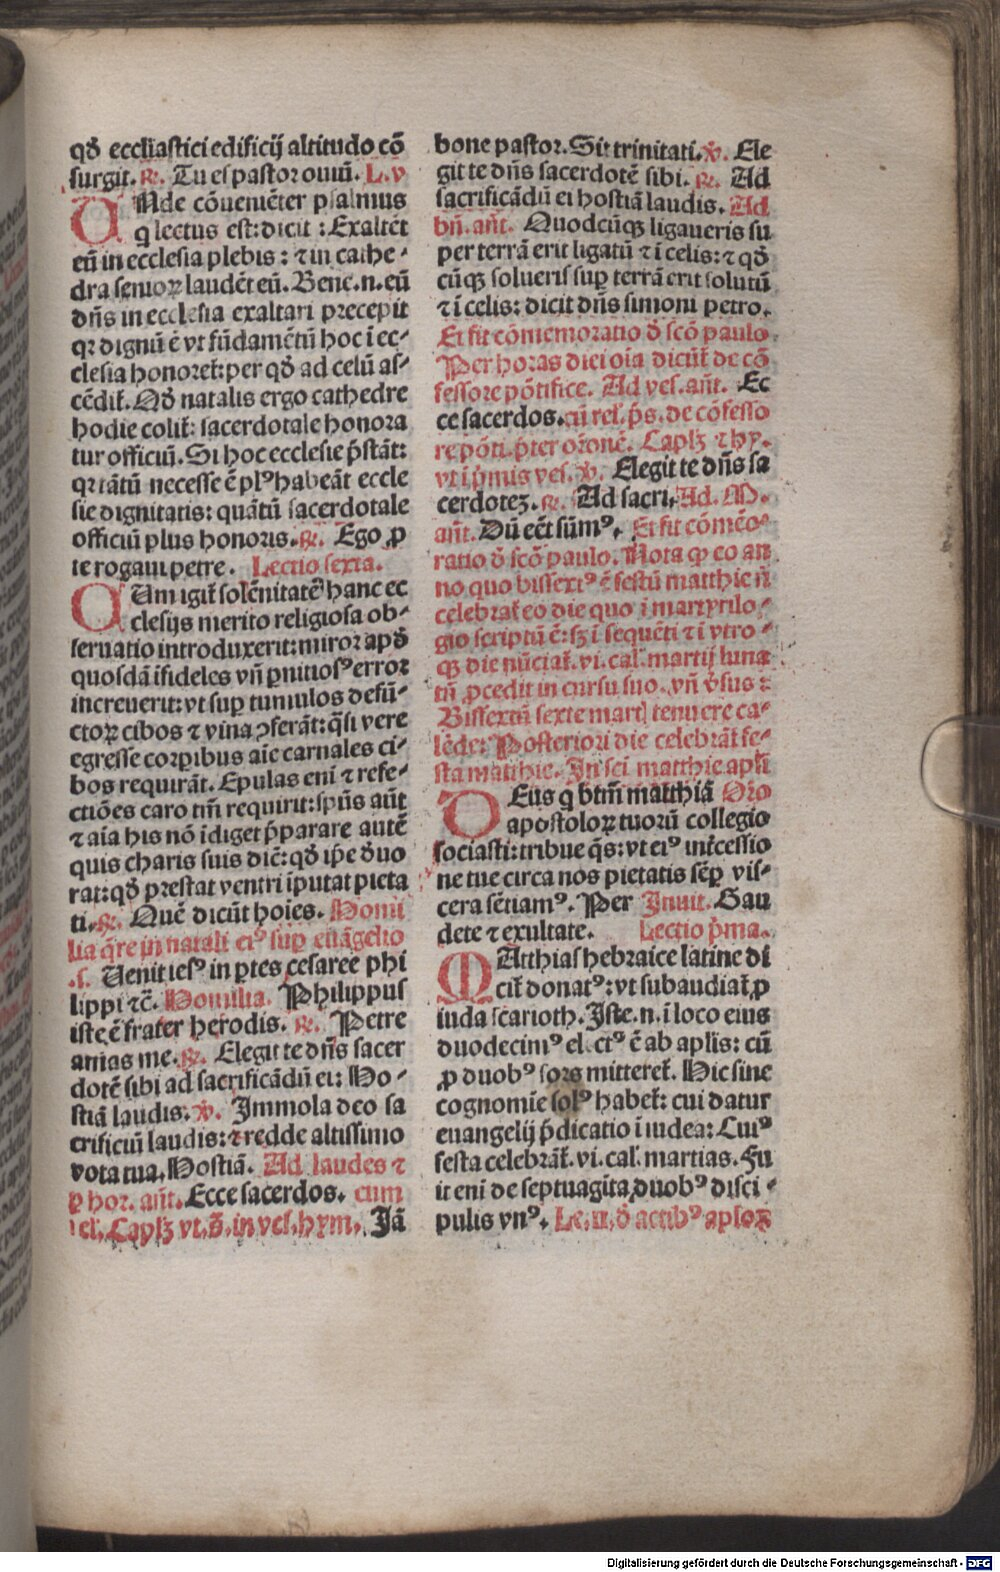 qđ ecclīastici edificij altitudo cō
surgit. ꝶ. Tu es pastor ouiū. L. v
UNde cōueniēter psalmus
q lectus est: dicit : Exaltēt
eū in ecclesia plebis : ⁊ in cathe-
dra senioꝝ laudēt eū. Bene .n. eū
dn̄s in ecclesia exaltari precepit
qꝛ dignū ē vt fūdamētū hoc ī ec-
clesia honoret᷑: per qđ ad celū as-
cēdit᷑. Qđ natalis ergo cathedre
hodie colit᷑: sacerdotale honora
tur officiū. Si hoc ecclesie p̄stāt:
qꝛ tātū necesse ē plꝰ habeāt eccle
sie dignitatis: quātū sacerdotale
officiū plus honoris. ꝶ. Ego ꝓ
te rogaui petre. Lectio sexta.
CUm igit᷑ solēnitatē hanc ec
clesijs merito religiosa ob-
seruatio introduxerit: miror apđ
quosdā īfideles vn̄ ꝑnitiosꝰ error
increuerit: vt suꝑ tumulos defū-
ctoꝝ cibos ⁊ vina ꝯferāt: q̄si vere
egresse corꝑibus aīe carnales ci-
bos requirāt. Epulas eni ⁊ refe-
ctiōes caro tm̄ requirit: spūs aūt
⁊ aīa his nō īdiget p̄parare autē
quis charis suis dic̄: qđ ip̄e đuo
rat: qđ prestat ventri īputat pieta
ti. ꝶ. Quē dicūt hoīes. Homi
lia q̄re in natali eiꝰ suꝑ euāgelio
.s. Uenit iesꝰ in ꝑtes cesaree phi
lippi ⁊c̄. Homilia. Philippus
iste ē frater herodis. ꝶ. Petre
amas me. ꝶ. Elegit te dn̄s sacer
dotē sibi ad sacrificādū ei: Ho-
stiā laudis. ꝟ. Immola deo sa
crificiū laudis: ⁊ redde altissimo
vota tua. Hostiā. Ad laudes ⁊
ꝑ hor. an̄t. Ecce sacerdos. cum
rel. Caplꝫ vt.s̄. in vel. hym. Jā
bone pastor. Sit trinitati. ꝟ. Ele
git te dn̄s sacerdotē sibi. ꝶ. Ad
sacrificādū ei hostiā laudis. Ad
bn̄. an̄t. Quodcūqꝫ ligaueris su
per terrā erit ligatū ⁊ ī celis: ⁊ qđ
cūqꝫ solueris suꝑ terrā erit solutū
⁊ ī celis: dicit dn̄s simoni petro.
Et fit cōmemoratio đ scō paulo
Per horas diei oīa dicūt᷑ de cō
fessore pōtifice. Ad ves. an̄t. Ec
ce sacerdos. cū rel. p̄s. de cōfesso
re pōti. p̄ter orōnē. Caplꝫ ⁊ hy.
vt ī p̄mis ves. ꝟ. Elegit te dn̄s sa
cerdoteꝫ. ꝶ. Ad sacri. Ad. M.
an̄t. Dū eēt sūmꝰ. Et fit cōmēo
ratio đ scō paulo. Nota ꝙ eo an
no quo bissextꝰ ē festū matthie n̄
celebrat᷑ eo die quo ī martyrilo-
gio scriptū ē: sꝫ ī sequēti ⁊ ī vtro-
qꝫ die nūciat᷑. vi. cal. martij luna
tn̄ ꝓcedit in cursu suo. vn̄ v̄sus :
Bissextū sexte martj tenuere ca-
lēde: Posteriori die celebrāt᷑ fe-
sta matthie. In scī matthie apl̄i
DEus q btm̄ matthiā Oro
apostoloꝝ tuorū collegio
sociasti: tribue q̄s: vt eiꝰ int᷑cessio
ne tue circa nos pietatis sēꝑ vis-
cera sētiamꝰ. Per Inuit. Gau
dete ⁊ exultate. Lectio p̄ma.
MAtthias hebraice latine di
cit᷑ donatꝰ: vt subaudiat᷑ ꝓ
iuda scarioth. Iste .n. ī loco eius
duodecimꝰ el. ctꝰ ē ab aplīs: cū
ꝓ duobꝰ sors mitteret᷑. Hic sine
cognomīe solꝰ habet᷑: cui datur
euangelij p̄dicatio ī iudea: Cuiꝰ
festa celebrāt᷑. vi. cal. martias. Fu
it eni de septuagīta duobꝰ disci-
pulis vnꝰ. Le. ii. đ actibꝰ ap̄loꝝ
Digitalisierung gefördert durch die Deutsche Forschungsgemeinschaft - DFG